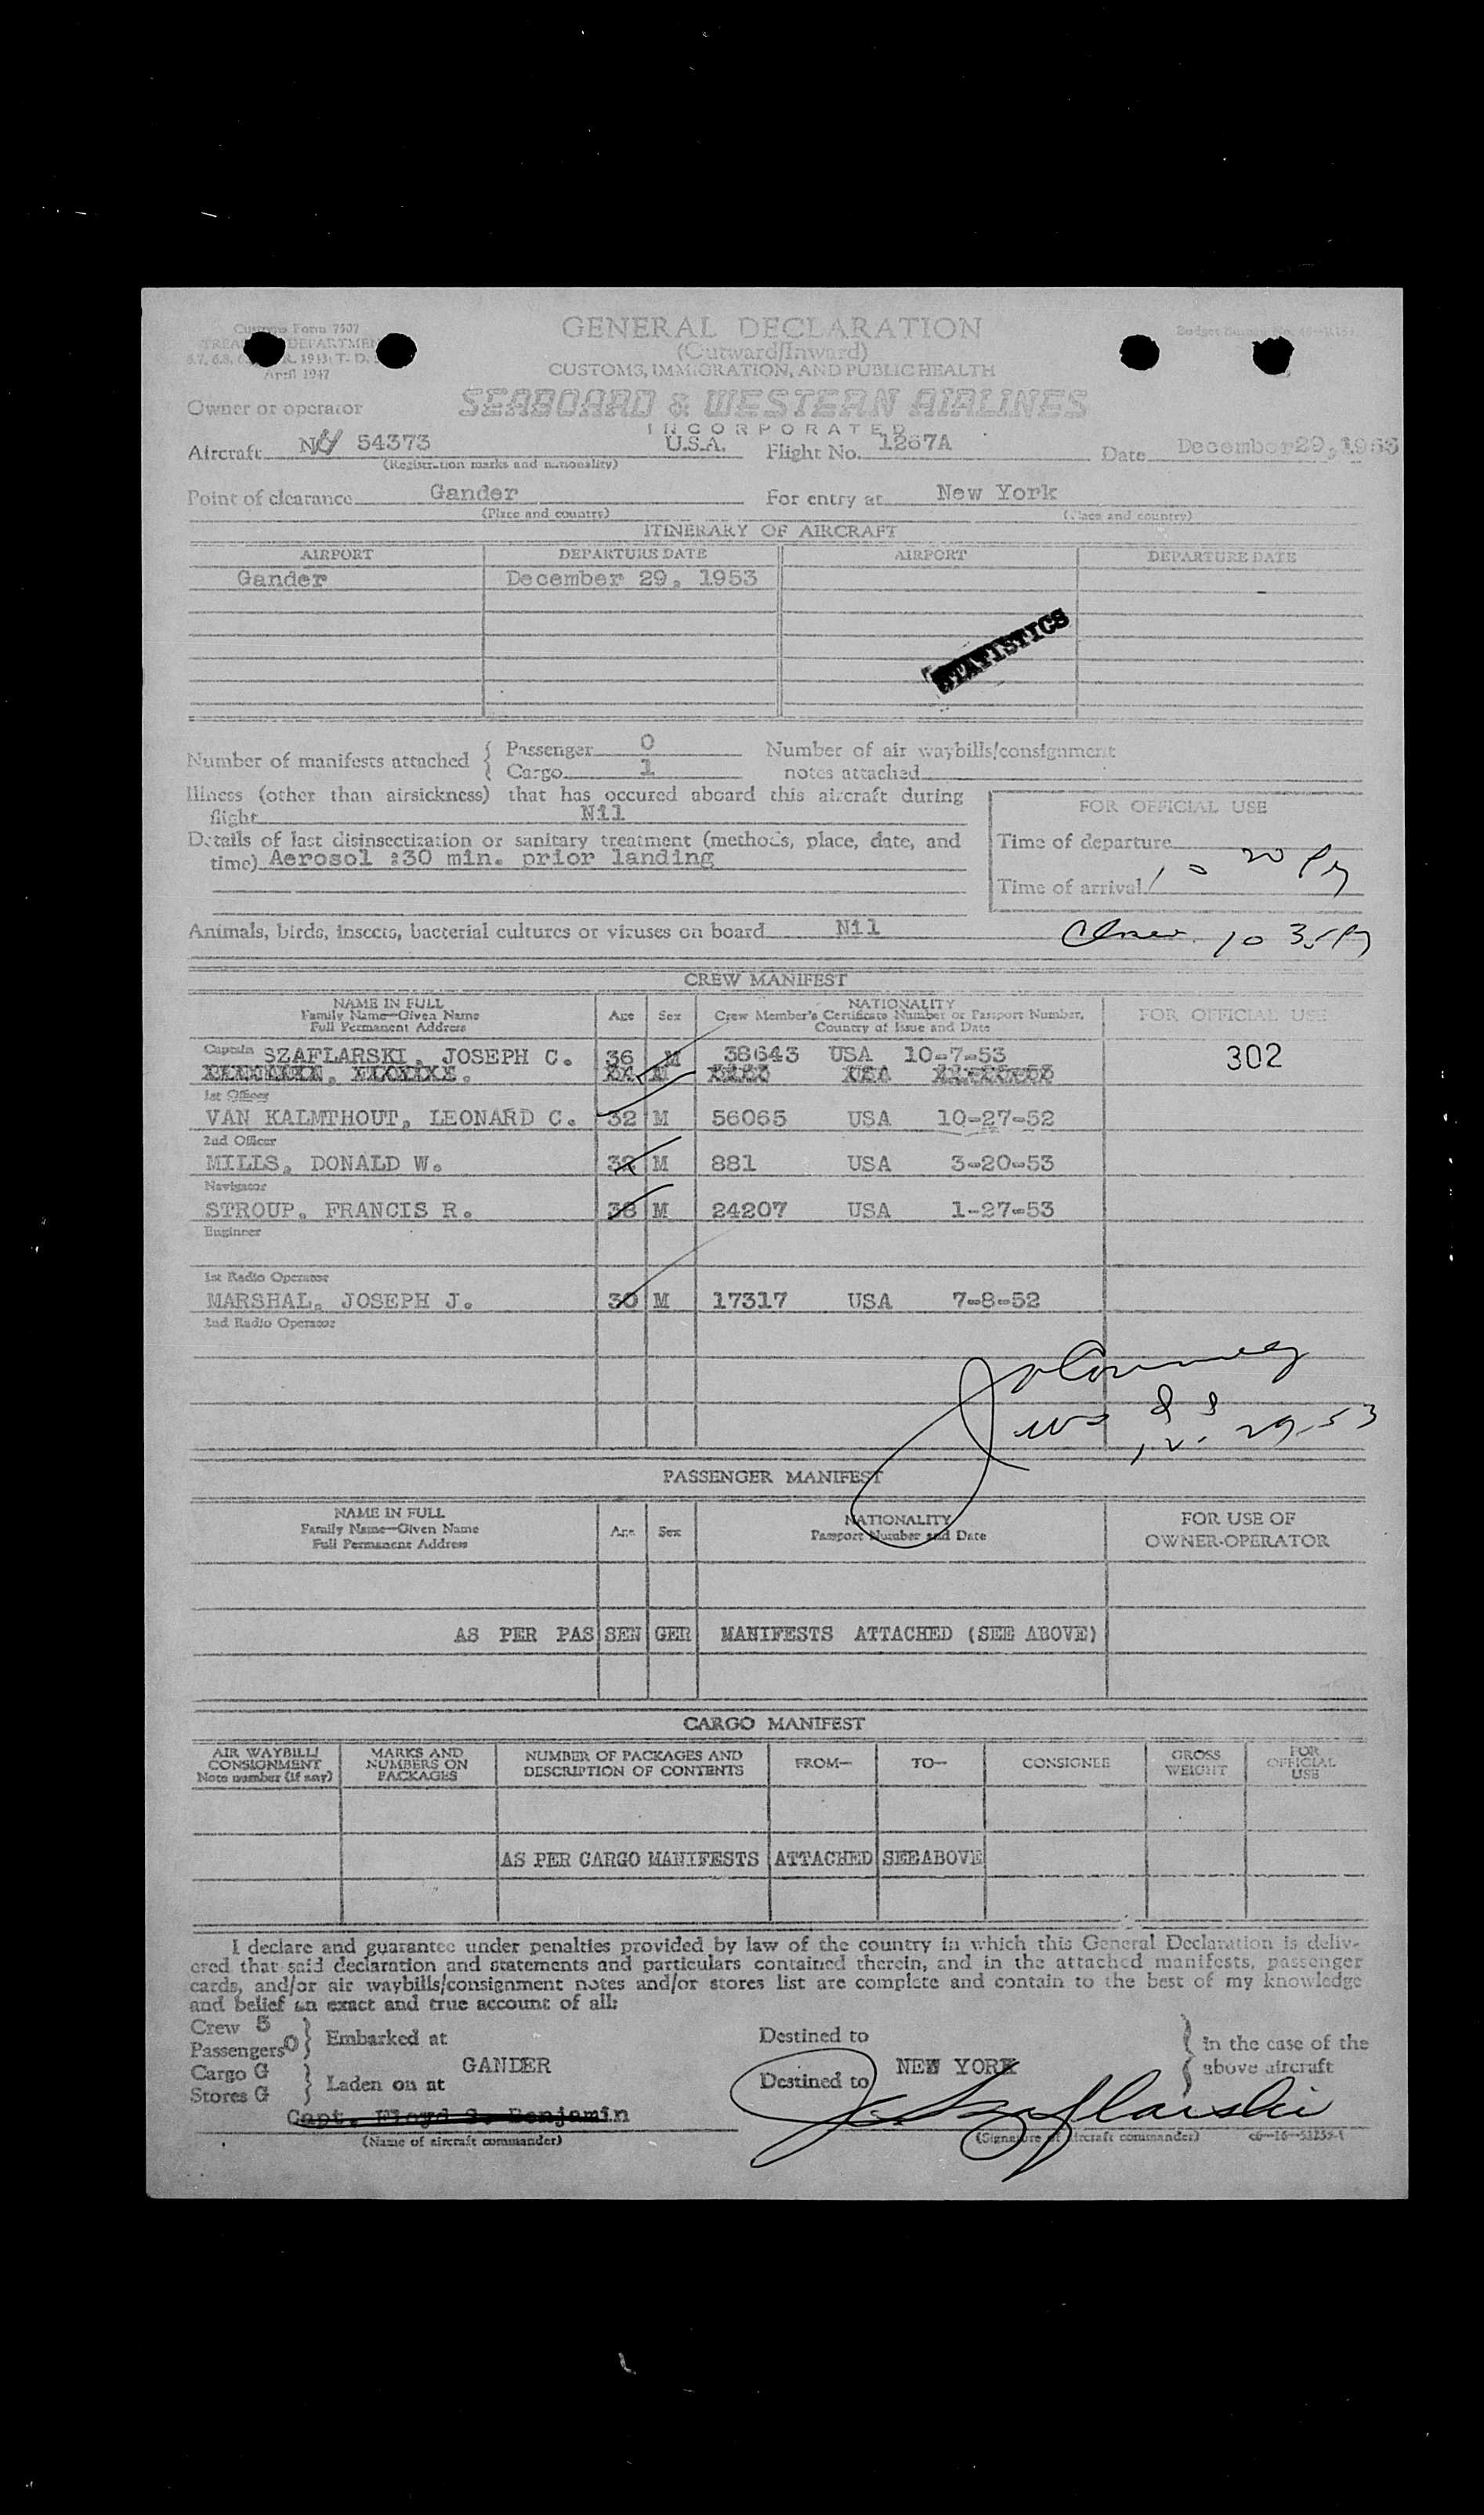 Customs Form 7507
GENERAL DECLARATION
TREASURY DEPARTMENT
(Outward/Inward)
April 1947
CUSTOMS, IMMIGRATION, AND PUBLIC HEALTH
Owner or operator SEABOARD & WESTERN AIRLINES
INCORPORATED
Aircraft 54373 U.S.A. Flight No. 1267A Date December 29, 1953
(Registration marks and nationality)
Point of clearance Gander For entry at New York
(Place and country) (Place and country)
ITINERARY OF AIRCRAFT
AIRPORT DEPARTURE DATE AIRPORT DEPARTURE DATE
Gander December 29, 1953
STATISTICS
Number of manifests attached { Passenger 0 Number of air waybills/consignment
Cargo 1 notes attached
Illness (other than airsickness) that has occured aboard this aircraft during
flight Nil
FOR OFFICIAL USE
Details of last disinsectization or sanitary treatment (methods, place, date, and
time) Aerosol :30 min. prior landing
Time of departure
Time of arrival 10 20 PM
Animals, birds, insects, bacterial cultures or viruses on board Nil
10 35 PM
CREW MANIFEST
NAME IN FULL Age Sex NATIONALITY FOR OFFICIAL USE
Family Name—Given Name Crew Member's Certificate Number or Passport Number,
Full Permanent Address Country of Issue and Date
Captain SZAFLARSKI, JOSEPH C. 36 M 38643 USA 10-7-53 302
1st Officer
VAN KALMTHOUT, LEONARD C. 32 M 56065 USA 10-27-52
2nd Officer
MILLS, DONALD W. 32 M 881 USA 3-20-53
Navigator
STROUP, FRANCIS R. 38 M 24207 USA 1-27-53
Engineer
1st Radio Operator
MARSHAL, JOSEPH J. 30 M 17317 USA 7-8-52
2nd Radio Operator
12-29-53
PASSENGER MANIFEST
NAME IN FULL Age Sex NATIONALITY FOR USE OF
Family Name—Given Name Passport Number and Date OWNER-OPERATOR
Full Permanent Address
AS PER PASSENGER MANIFESTS ATTACHED (SEE ABOVE)
CARGO MANIFEST
AIR WAYBILL/ MARKS AND NUMBER OF PACKAGES AND FROM— TO— CONSIGNEE GROSS FOR
CONSIGNMENT NUMBERS ON DESCRIPTION OF CONTENTS WEIGHT OFFICIAL
Note number (if any) PACKAGES USE
AS PER CARGO MANIFESTS ATTACHED SEE ABOVE
I declare and guarantee under penalties provided by law of the country in which this General Declaration is deliv-
ered that said declaration and statements and particulars contained therein, and in the attached manifests, passenger
cards, and/or air waybills/consignment notes and/or stores list are complete and contain to the best of my knowledge
and belief an exact and true account of all:
Crew 5 } Embarked at Destined to } In the case of the
Passengers 0
GANDER NEW YORK
Cargo G } Laden on at Destined to } above aircraft
Stores G
Capt. Floyd S. Benjamin
(Name of aircraft commander) (Signature of aircraft commander)